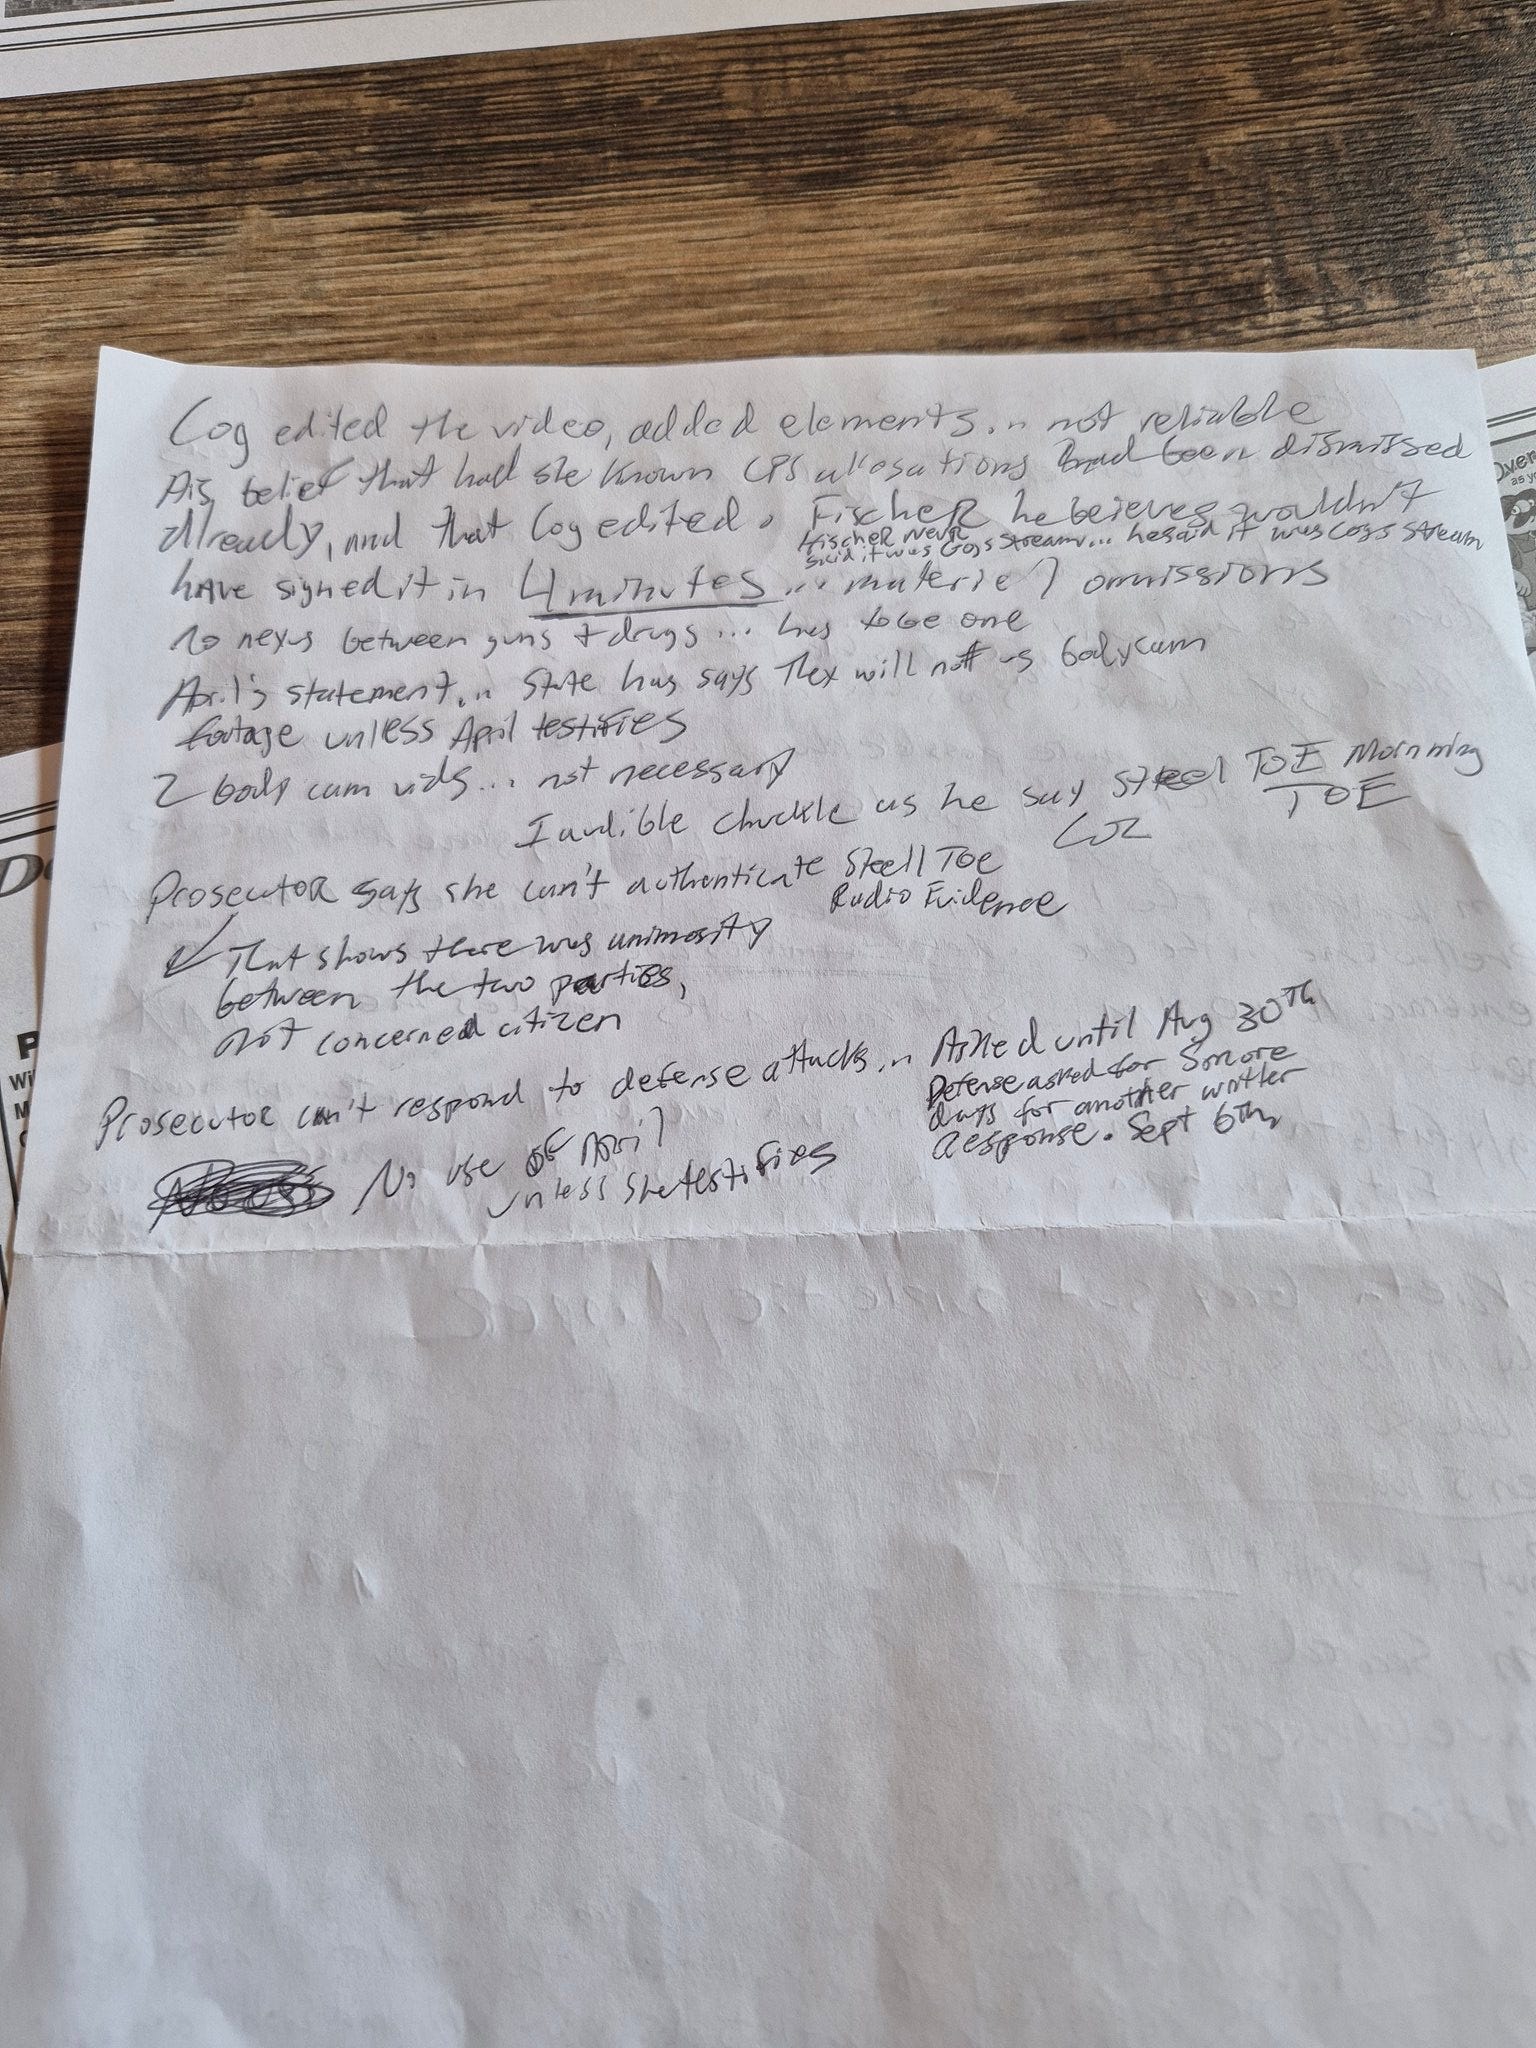 Cog edited the video, added elements... not reliable
His belief that had she known CPS allosations had been dismissed
already, and that Cog edited. FischeR he believes wouldn't
FischeR never
said it was Cogs stream... he said it was Cogs stream
have signed it in 4 minutes ... material omissions
no nexus between guns + drugs ... has to be one
April's statement... State has says They will not us bodycam
footage unless April testifies
2 body cam vids... not necessary
I audible chuckle as he say Steel TOE Mornning
TOE
LOL
ProsecutoR says she can't authenticate Steell Toe
Radio Evidence
That shows there was animosity
between the two parties,
not concerned citizen
ProsecutoR can't respond to defense attacks... Asked until Aug 30Th
Defense asked for 5 more
days for another written
response. Sept 6th
No use of April
unless she testifies
Over
as yo
D
P
Wi
M